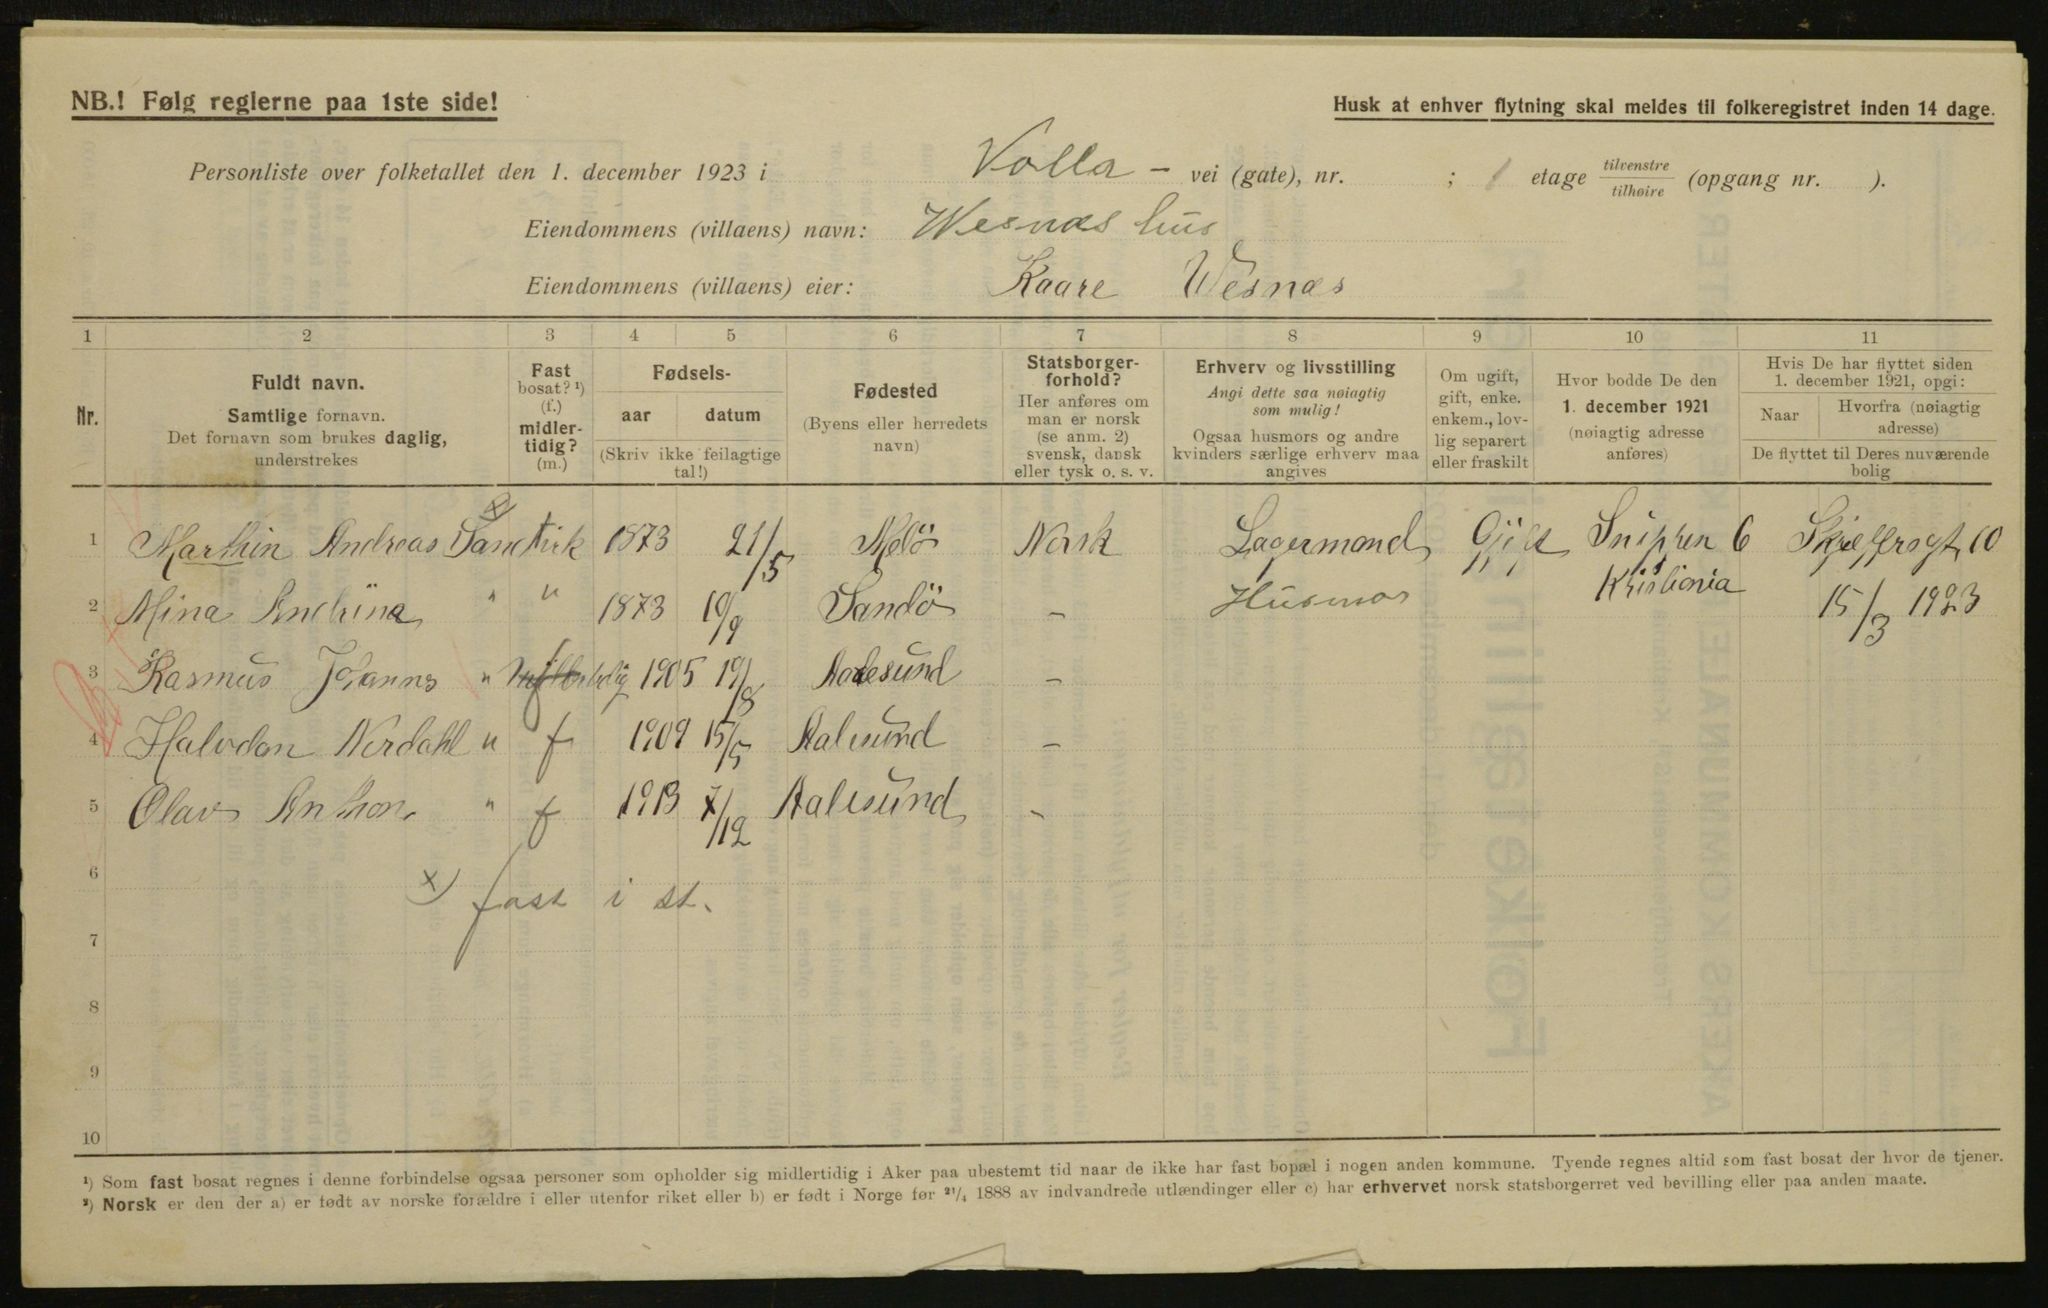 NB.! Følg reglerne paa 1ste side!
Husk at enhver flytning skal meldes til folkeregistret inden 14 dage.
Personliste over folketallet den 1. december 1923 i Volla - vei (gate), nr. ; 1 etage tilvenstre tilhøire (opgang nr. ).
Eiendommens (villaens) navn: Wesnæs hus
Eiendommens (villaens) eier: Kaare Wesnæs
1 2 3 4 5 6 7 8 9 10 11
Nr.
Fuldt navn.
Samtlige fornavn.
Det fornavn som brukes daglig,
understrekes
Fast
bosat? ¹)
(f.)
midler-
tidig?
(m.)
Fødsels-
aar datum
(Skriv ikke feilagtige
tal!)
Fødested
(Byens eller herredets
navn)
Statsborger-
forhold?
Her anføres om
man er norsk
(se anm. 2)
svensk, dansk
eller tysk o. s. v.
Erhverv og livsstilling
Angi dette saa nøiagtig
som mulig!
Ogsaa husmors og andre
kvinders særlige erhverv maa
angives
Om ugift,
gift, enke.
enkem., lov-
lig separert
eller fraskilt
Hvor bodde De den
1. december 1921
(nøiagtig adresse
anføres)
Hvis De har flyttet siden
1. december 1921, opgi:
Naar Hvorfra (nøiagtig
adresse)
De flyttet til Deres nuværende
bolig
x)
1 Marthin Andreas 1873 21/5 Norsk Lagermand Gift Snippen 6
Kristiania
2 Mina Andrina " " 1873 10/9 Sandö - Husmor 15/3 1923
3 Rasmus Johannes " 1905 19/8 Aalesund -
4 Halvdan Nordahl " f 1909 15/5 Aalesund -
5 Olav Anthon " f 1913 7/12 Aalesund -
6
x) fast i st.
7
8
9
10
¹) Som fast bosat regnes i denne forbindelse ogsaa personer som opholder sig midlertidig i Aker paa ubestemt tid naar de ikke har fast bopæl i nogen anden kommune. Tyende regnes altid som fast bosat der hvor de tjener.
²) Norsk er den der a) er født av norske forældre i eller utenfor riket eller b) er født i Norge før ²¹/₄ 1888 av indvandrede utlændinger eller c) har erhvervet norsk statsborgerret ved bevilling eller paa anden maate.